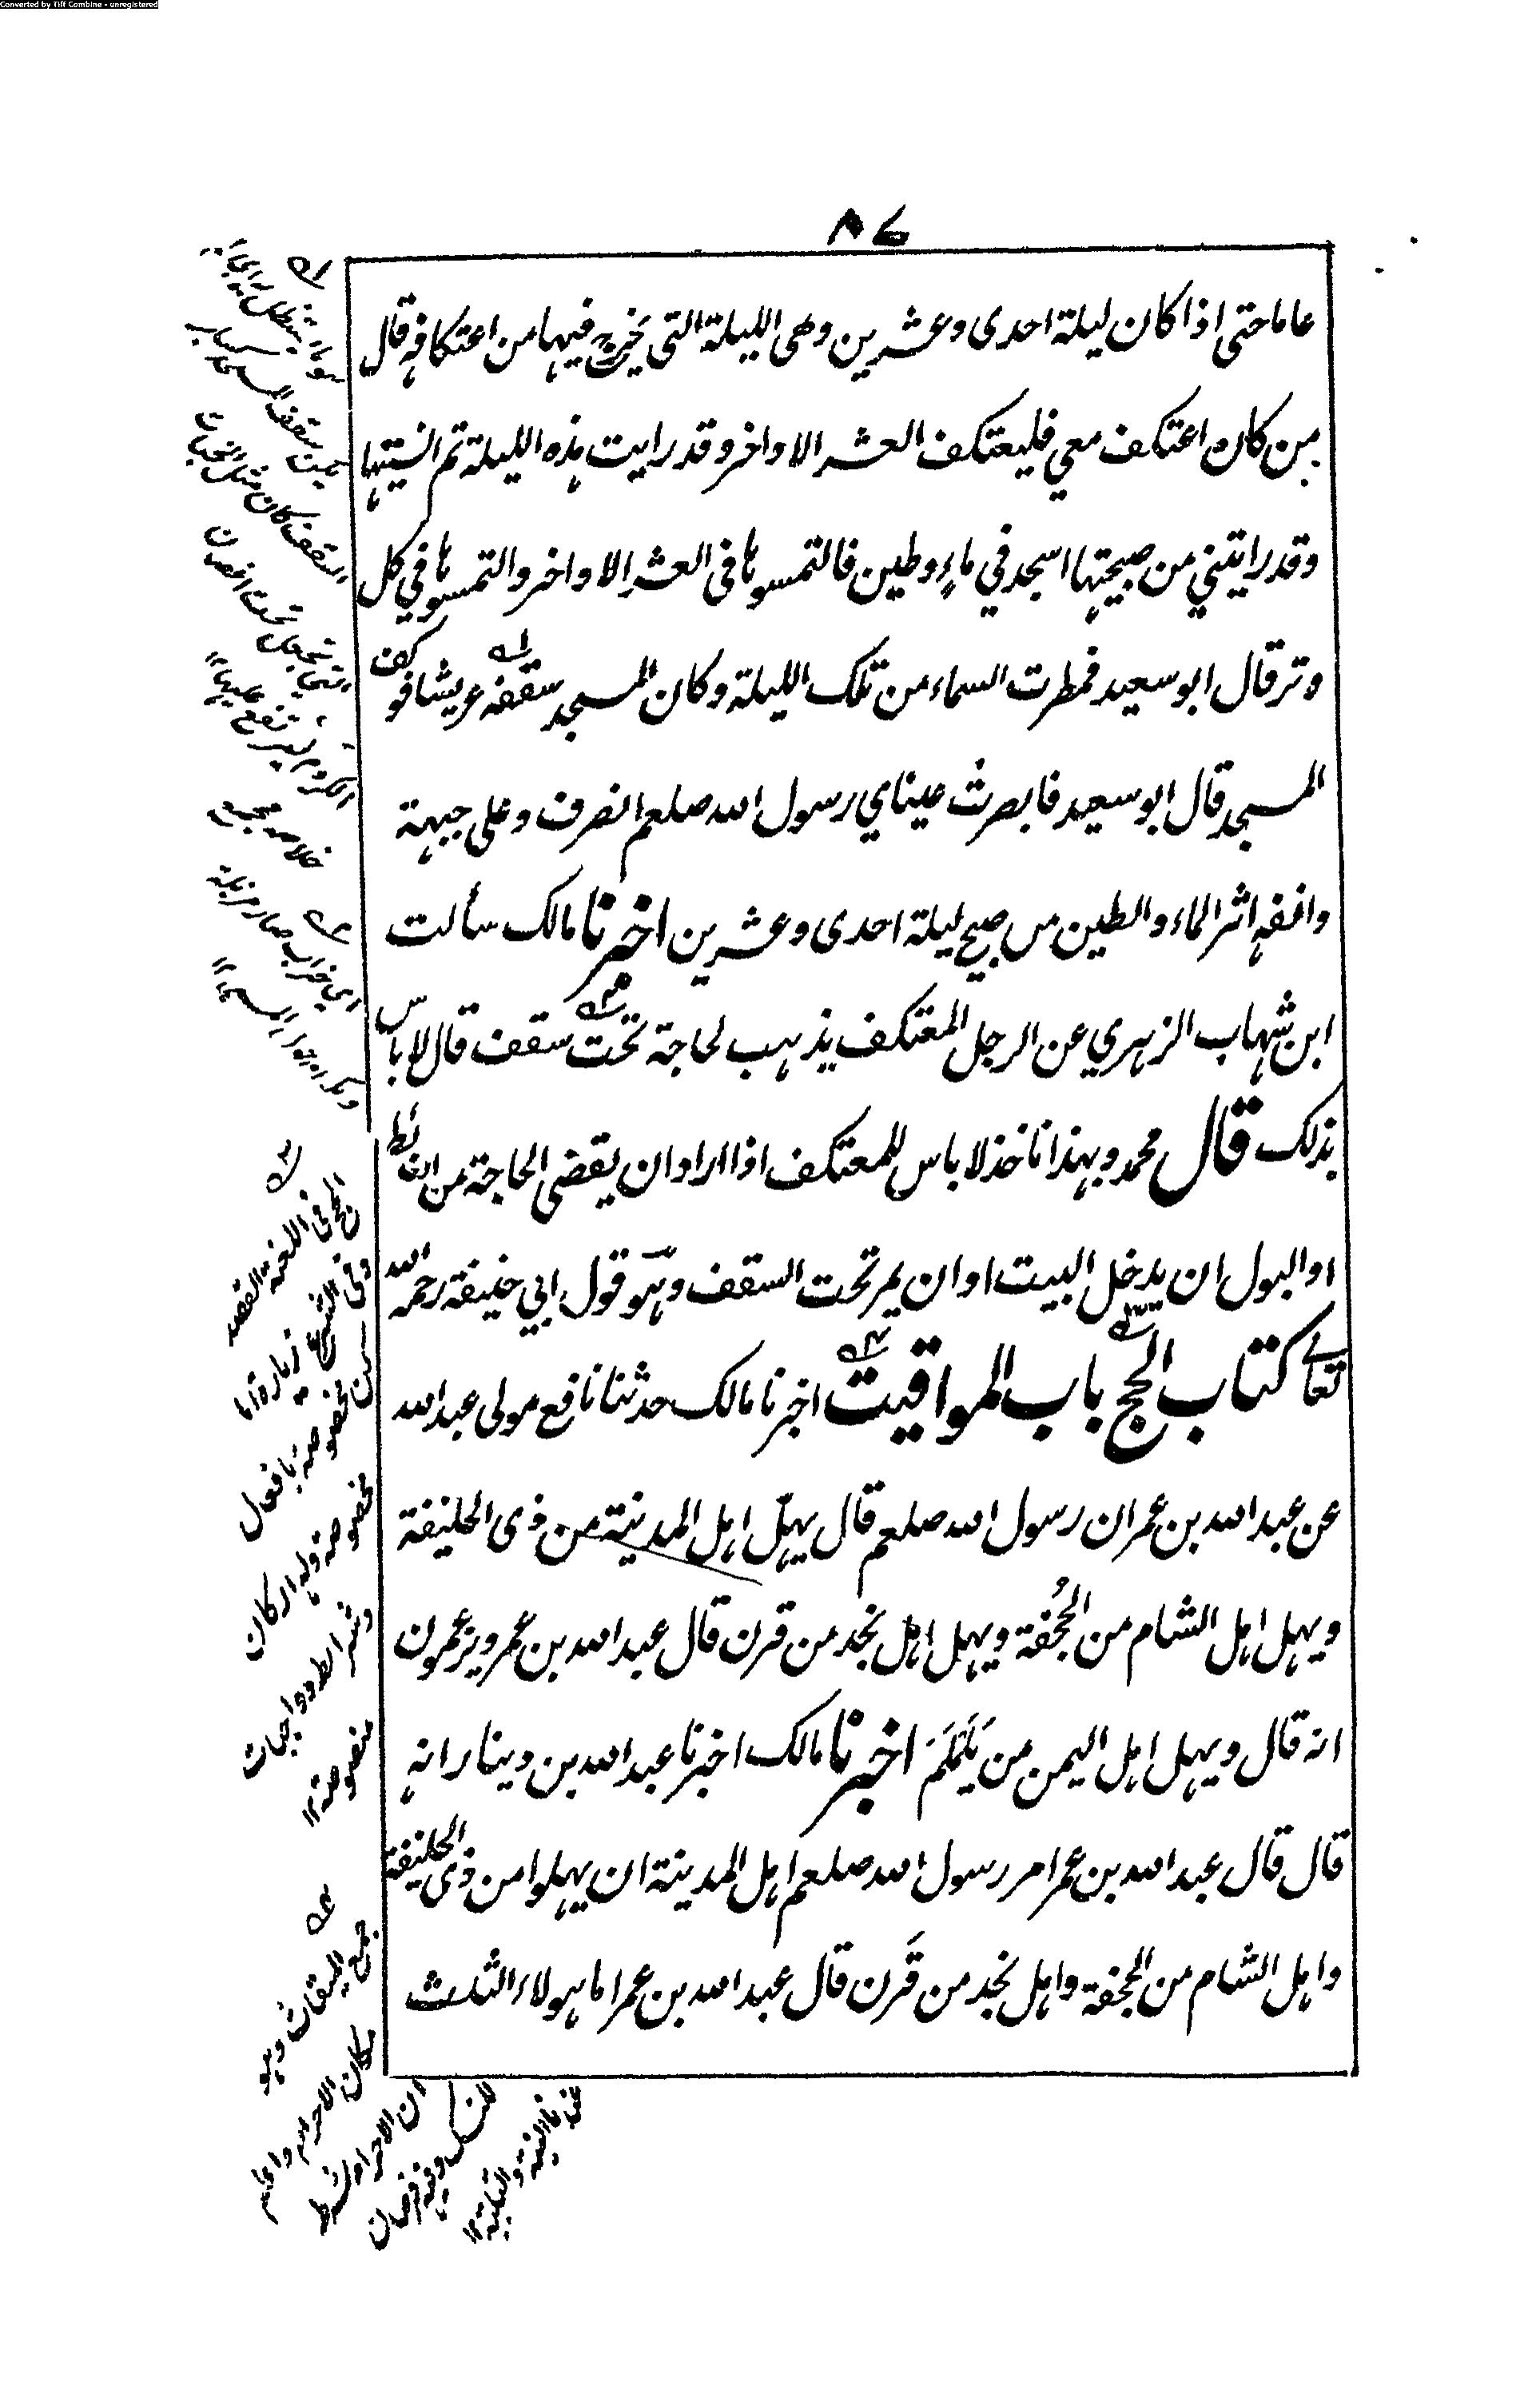 Converted by Tiff Combine - unregistered
٨٧
عاما حتى اذا كان ليلة احدى وعشرين وهى الليلة التى يخرج فيها من اعتكافه قال
من كان اعتكف معي فليعتكف العشر الاواخر وقد رايت هذه الليلة ثم انسيتها
وقد رايتني من صبيحتها اسجد في ماءٍ وطين فالتمسوها فى العشرِ الاواخر والتمسوها في كل
وتر قال ابو سعيد فمطرت السماء من تلك الليلة وكان المسجد سقفه عريشا فوكف
المسجد قال ابو سعيد فابصرت عيناي رسول الله صلعم انصرف وعلى جبهة
وانفه اثر الماء والطين من صبح ليلة احدى وعشرين اخبرنا مالك سألت
ابن شهاب الزهري عن الرجل المعتكف يذهب لحاجة تحت سقف قال لا باس
بذلك قال محمد وبهذا ناخذ لا باس للمعتكف اذا اراد ان يقضى الحاجة من الغائط
او البول ان يدخل البيت او ان يمر تحت السقف وهو قول ابي حنيفة رحمه الله
تعالے كتاب الحج باب المواقيت اخبرنا مالك حدثنا نافع مولى عبد الله
عن عبد الله بن عمر ان رسول الله صلعم قال يهلّ اهل المدينة من ذى الحليفة
ويهل اهل الشام من الجُحفة ويهل اهل نجد من قرن قال عبد الله بن عمر ويزعمون
انه قال ويهل اهل اليمن من يَلَملَمَ اخبرنا مالك اخبرنا عبد الله بن دينار انه
قال قال عبد الله بن عمر امر رسول الله صلعم اهل المدينة ان يهلوا من ذى الحليفة
واهل الشام من الجحفة واهل نجد من قَرن قال عبد الله بن عمر اما هولاء الثلث
الحج فى اللغة القصد
وفى الشرع زيارة اما
كن مخصوصة بافعال
مخصوصة وله اركان
وشرائط وواجبات
منصوصة ١٢
جمع الميقات وهو
مكان الاحرام واعلم
ان الاحرام شرط